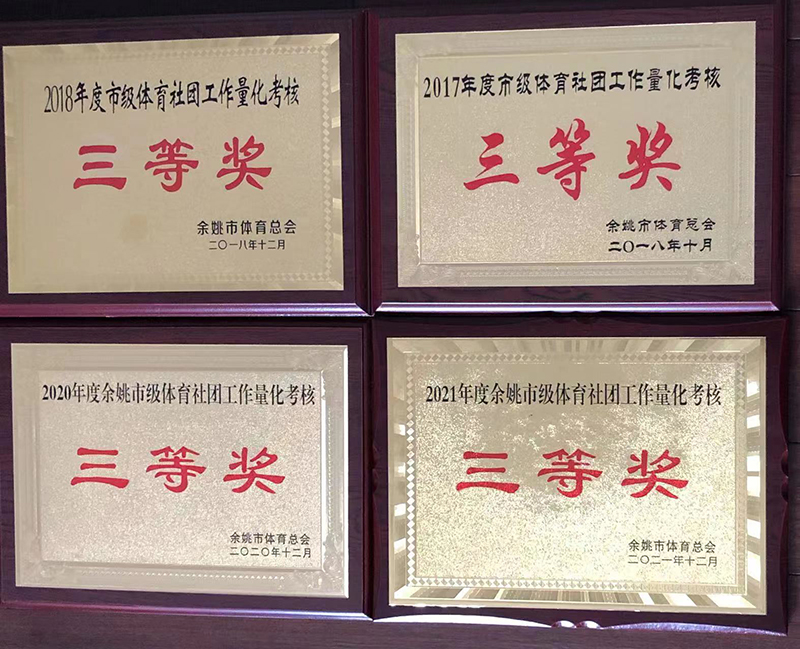 2018年度市级体育社团工作量化考核
三等奖
余姚市体育总会
二〇一八年十二月
2017年度市级体育社团工作量化考核
三等奖
余姚市体育总会
二〇一八年十月
2020年度余姚市级体育社团工作量化考核
三等奖
余姚市体育总会
二〇二〇年十二月
2021年度余姚市级体育社团工作量化考核
三等奖
余姚市体育总会
二〇二一年十二月